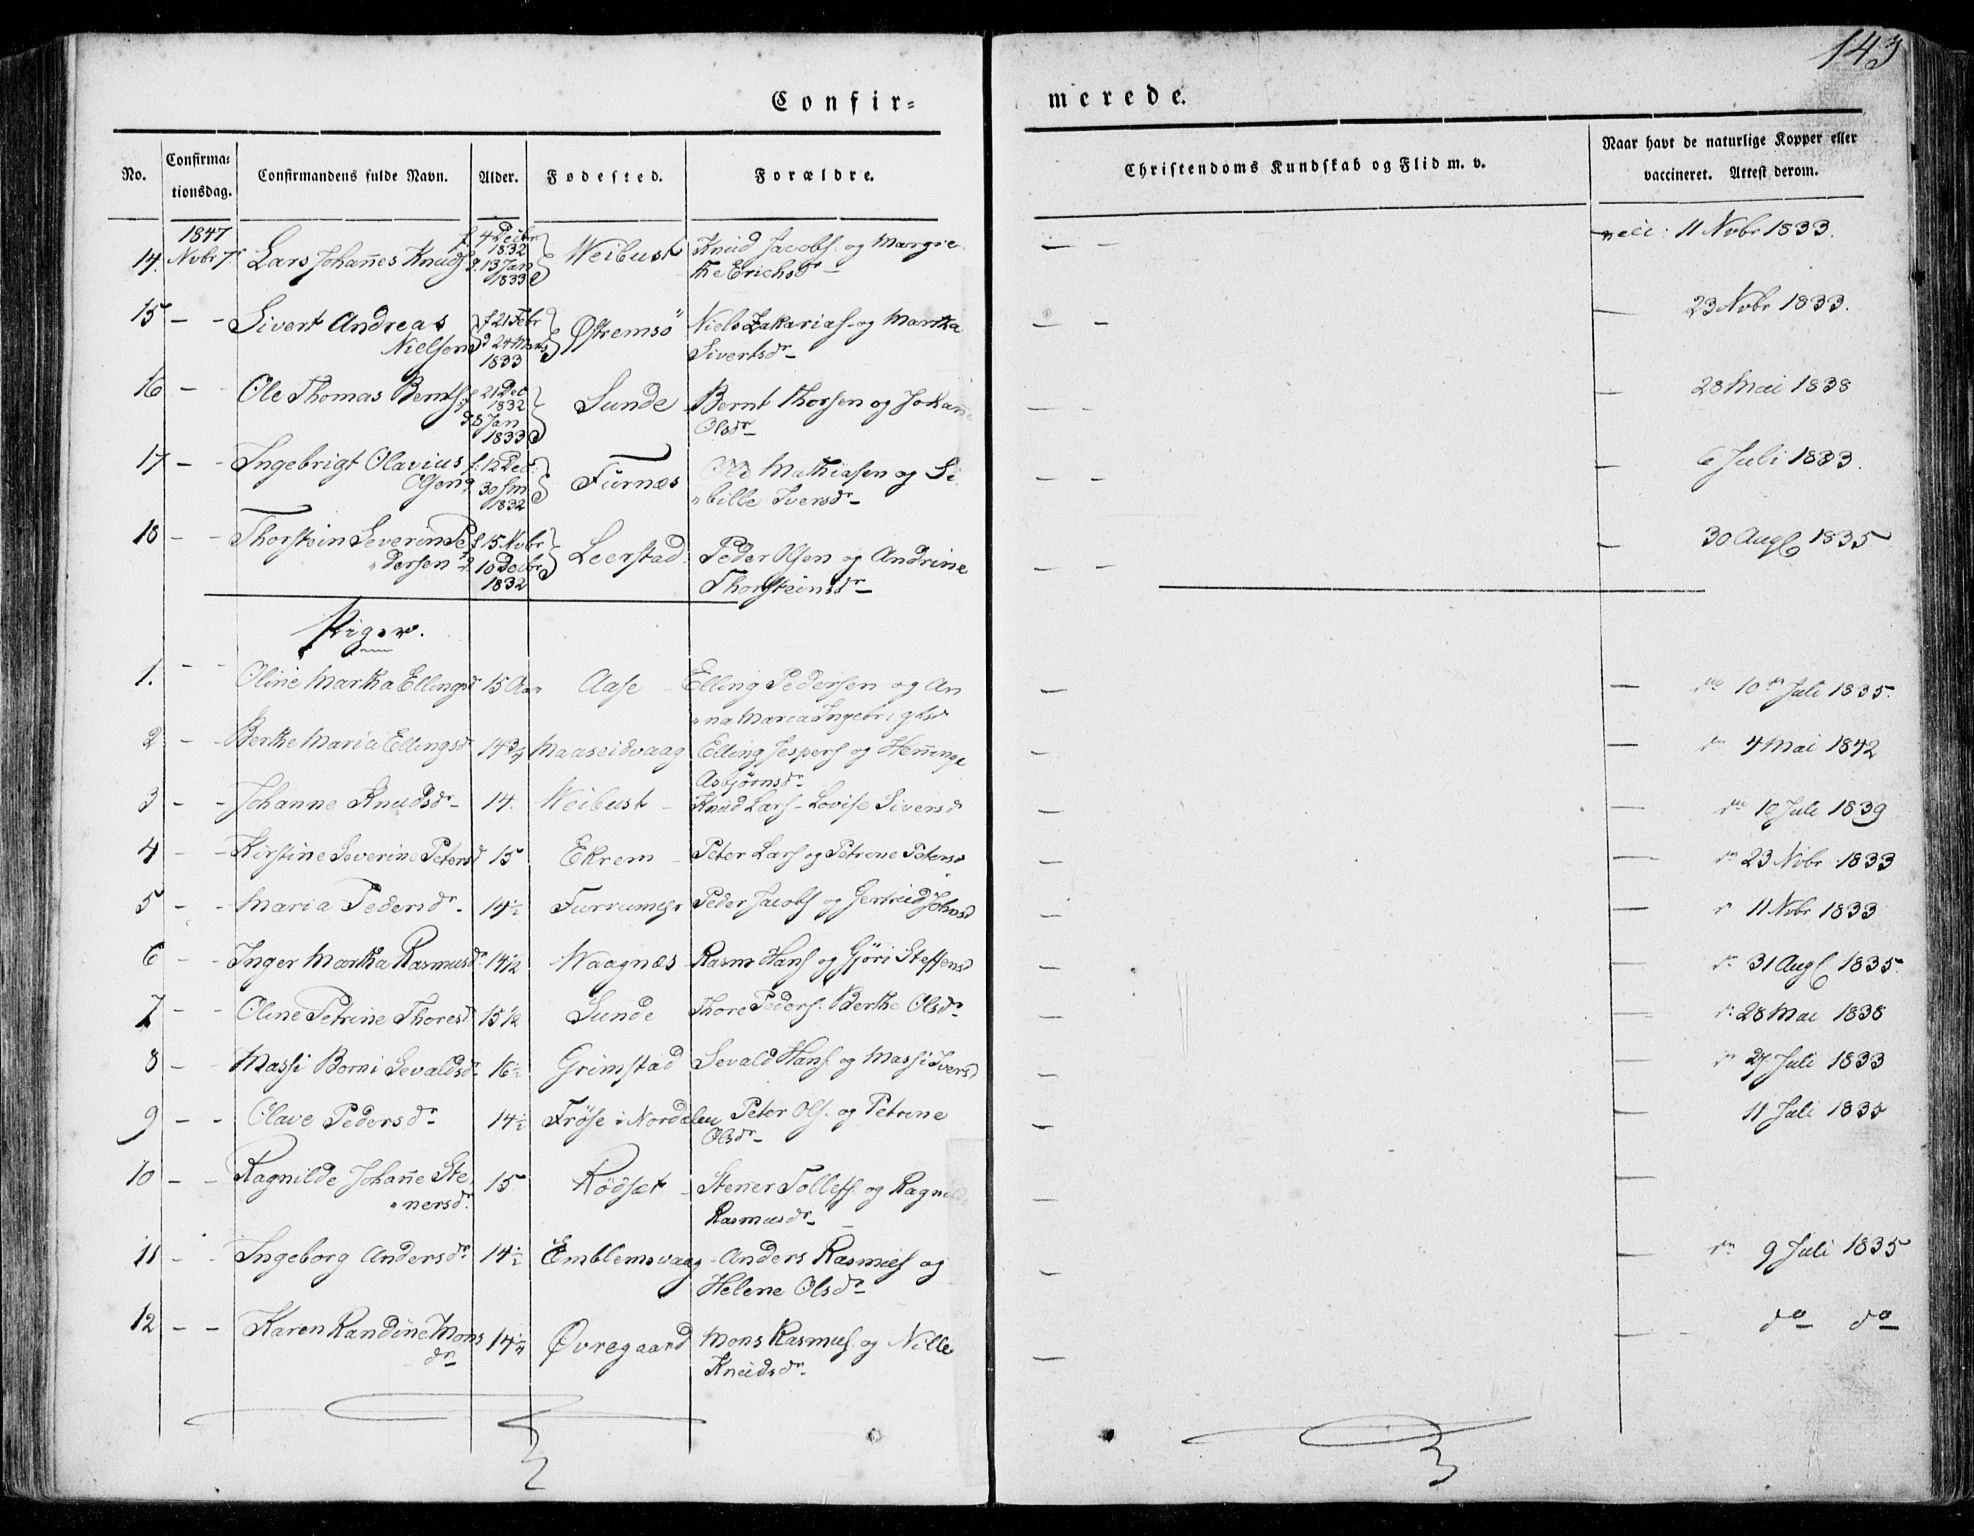 143
Confir-
merede.
No.
Confirma-
tionsdag.
Confirmandens fulde Navn.
Alder.
Fødested.
Forældre.
Christendoms Kundskab og Flid m. v.
Naar havt de naturlige Kopper eller
vaccineret. Attest derom.
1847
14. Novbr 7. Lars Johannes Knuds f. 4 Decbr 1832 g. 13 Jan 1833 Weibust Knud Jacobs. og Margre
the Erichsdr — — — 11 Novbr 1833.
15 — — Sivert Andreas f 21 Febr Østremsö Niels Zakarias. og Martha
Nielsen g 24 Marts
1833 Sivertsdr — — — — 23 Novbr 1833.
16 — — Ole Thomas Bernts f 21 Dec 1832 Sunde Bernt Thorsen og Johanne
g 8 Jan 1833 Olsdr — — — — 28 Mai 1838
17 — — Ingebrigt Olavius f. 12 Dec. Furnæs Ole Mathiasen og Si
Olsen g. 30 sm 1832 "bille Iversdr — — — — 6 Juli 1833.
18 — — Thorstein Severin Pe f 15 Novbr Leerstad Peder Olsen og Andrine
"dersen g 10 Decbr
1832 Thorsteinsdr — — — — 30 Aug 1835
Piger.
1. — — Oline Martha Ellingsd 15 Aar Aase Elling Pedersen og An
"na Maria Ingebrigtsd — — 10 Juli 1835.
2 — — Berthe Maria Ellingsd 14 3/4 Maaseidvaag Elling Jespers og Hemminge
Asbjørnsdr — — — 4 Mai 1842
3 — — Johanne Knudsdr — 14. Weibust — Knud Lars — Lovise Siversd — — 10 Juli 1839
4 — — Kirstine Severine Petersd 15 Ekrem — Peter Lars og Petrene Petersd — — 23 Novbr 1833
5 — — Maria Pedersdr. 14½ Peder Jacobs og Gertrud Johnsd — — 11 Novbr 1833
6 — — Inger Martha Rasmusdr. 14½ Waagnæs Rasm Hans og Gjöri Steffensd — — 31 Aug 1835.
7 — — Oline Petrine Thoresd 15½ Sunde Thore Peders. Berthe Olsdr. — — 28 Mai 1838
8 — — Massi Borni Sevaldsd 16½ Grimstad Sevald Hans. og Massi Iversd — — 27 Juli 1833
9 — — Olave Pedersdr 14½ Fröse i Nordalen Peter Ols. og Petrene
Olsdr — — — 11 Juli 1835
10 — — Ragnilde Johanne Ste 15. Rödsæt — Stener Tollefs. og Ragnild
"nersd. Rasmusdr — — —
11 — — Ingeborg Andersdr 14½ Emblemsvaag — Anders Rasmus og
Helene Olsdr — — — 9 Juli 1835
12 — — Karen Randine Mons 14½ Øvregaard Mons Rasmus. og Nille
dr Knudsdr. — — do do